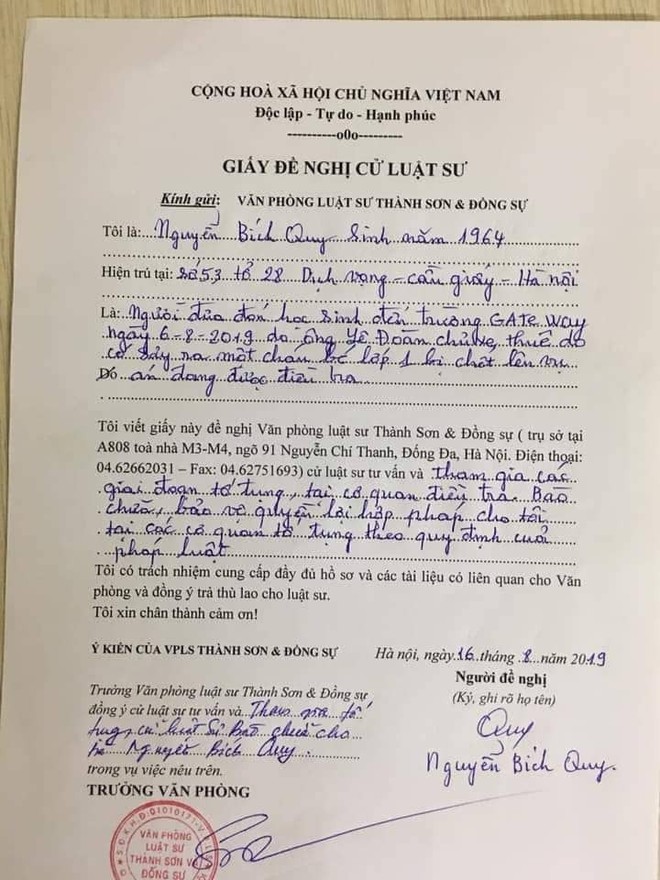 CỘNG HOÀ XÃ HỘI CHỦ NGHĨA VIỆT NAM
Độc lập - Tự do - Hạnh phúc
----------o0o---------
GIẤY ĐỀ NGHỊ CỬ LUẬT SƯ
Kính gửi: VĂN PHÒNG LUẬT SƯ THÀNH SƠN & ĐỒNG SỰ
Tôi là: Nguyễn Bích Quy Sinh năm 1964
Hiện trú tại: số 53 tổ 28 Dịch vọng - cầu giấy - Hà nội
Là: Người đưa đón học sinh đến trường GATE WAY
ngày 6-8-2019 do ông Doãn thuê do
có sảy ra một cháu lớp 1 bị chết lên vụ
Đó án đang được điều tra
Tôi viết giấy này đề nghị Văn phòng luật sư Thành Sơn & Đồng sự ( trụ sở tại
A808 toà nhà M3-M4, ngõ 91 Nguyễn Chí Thanh, Đống Đa, Hà Nội. Điện thoại:
04.62662031 – Fax: 04.62751693) cử luật sư tư vấn và tham gia các
giai đoạn tố tụng, tại cơ quan điều tra Bào
chữa, bảo vệ quyền lợi hợp pháp cho tôi
tại các cơ quan tố tụng theo quy định cuả
pháp luật
Tôi có trách nhiệm cung cấp đầy đủ hồ sơ và các tài liệu có liên quan cho Văn
phòng và đồng ý trả thù lao cho luật sư.
Tôi xin chân thành cảm ơn!
Ý KIẾN CỦA VPLS THÀNH SƠN & ĐỒNG SỰ
Hà nội, ngày 16 tháng 8 năm 2019
Người đề nghị
(Ký, ghi rõ họ tên)
Quy
Nguyễn Bích Quy.
Trưởng Văn phòng luật sư Thành Sơn & Đồng sự
đồng ý cử luật sư tư vấn và Tham gia tố
tụng, cử luật sư Bào chữa cho
bà Nguyễn Bích Quy.
trong vụ việc nêu trên.
TRƯỞNG VĂN PHÒNG
VĂN PHÒNG
LUẬT SƯ
THÀNH SƠN VÀ
ĐỒNG SỰ